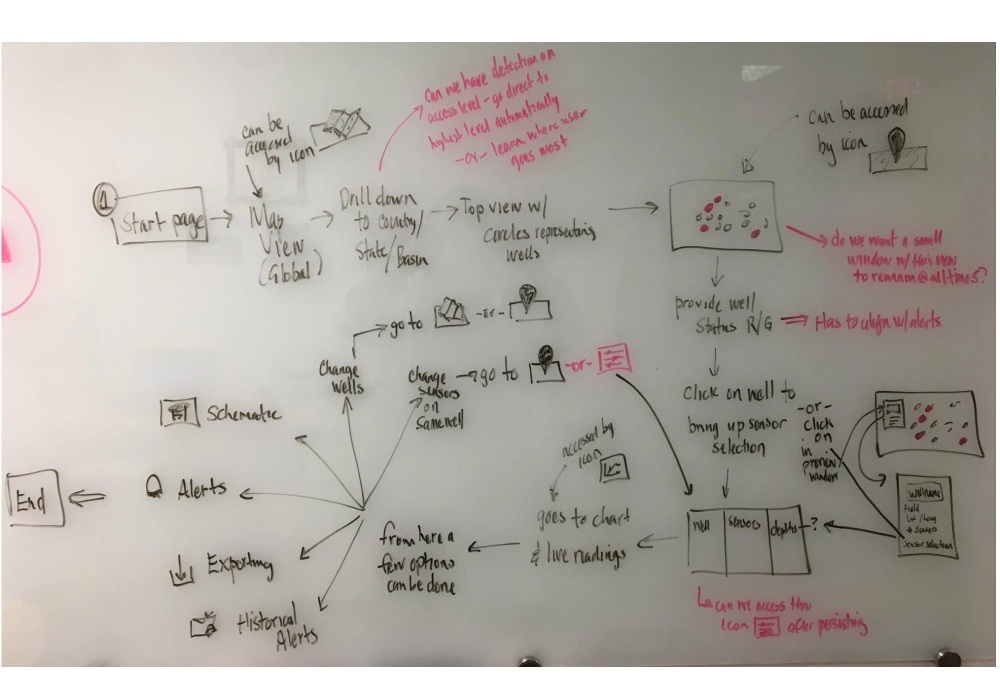 can we have detection on
access level - go direct to
highest level automatically
- or - learn where user
goes most
can be
accessed
by icon
can be accessed
by icon
1
Start page
Map
View
(Global)
Drill down
to country/
State/Basin
Top view w/
circles representing
wells
do we want a small
window w/ this view
to remain @ all times?
provide well
status R/G
Has to align w/ alerts
go to
-or-
Change
wells
change
sensors
on
same well
go to
-or-
Click on well to
bring up sensor
selection
-or-
click
on
in
preview
window
Schematic
accessed by
icon
End
Alerts
from here a
few options
can be done
goes to chart
& live readings
well
sensors
depths
?
Well name
Field
Lat/Long
# Sensors
Sensor selection
Exporting
Historical
Alerts
can we access thru
icon
after persisting